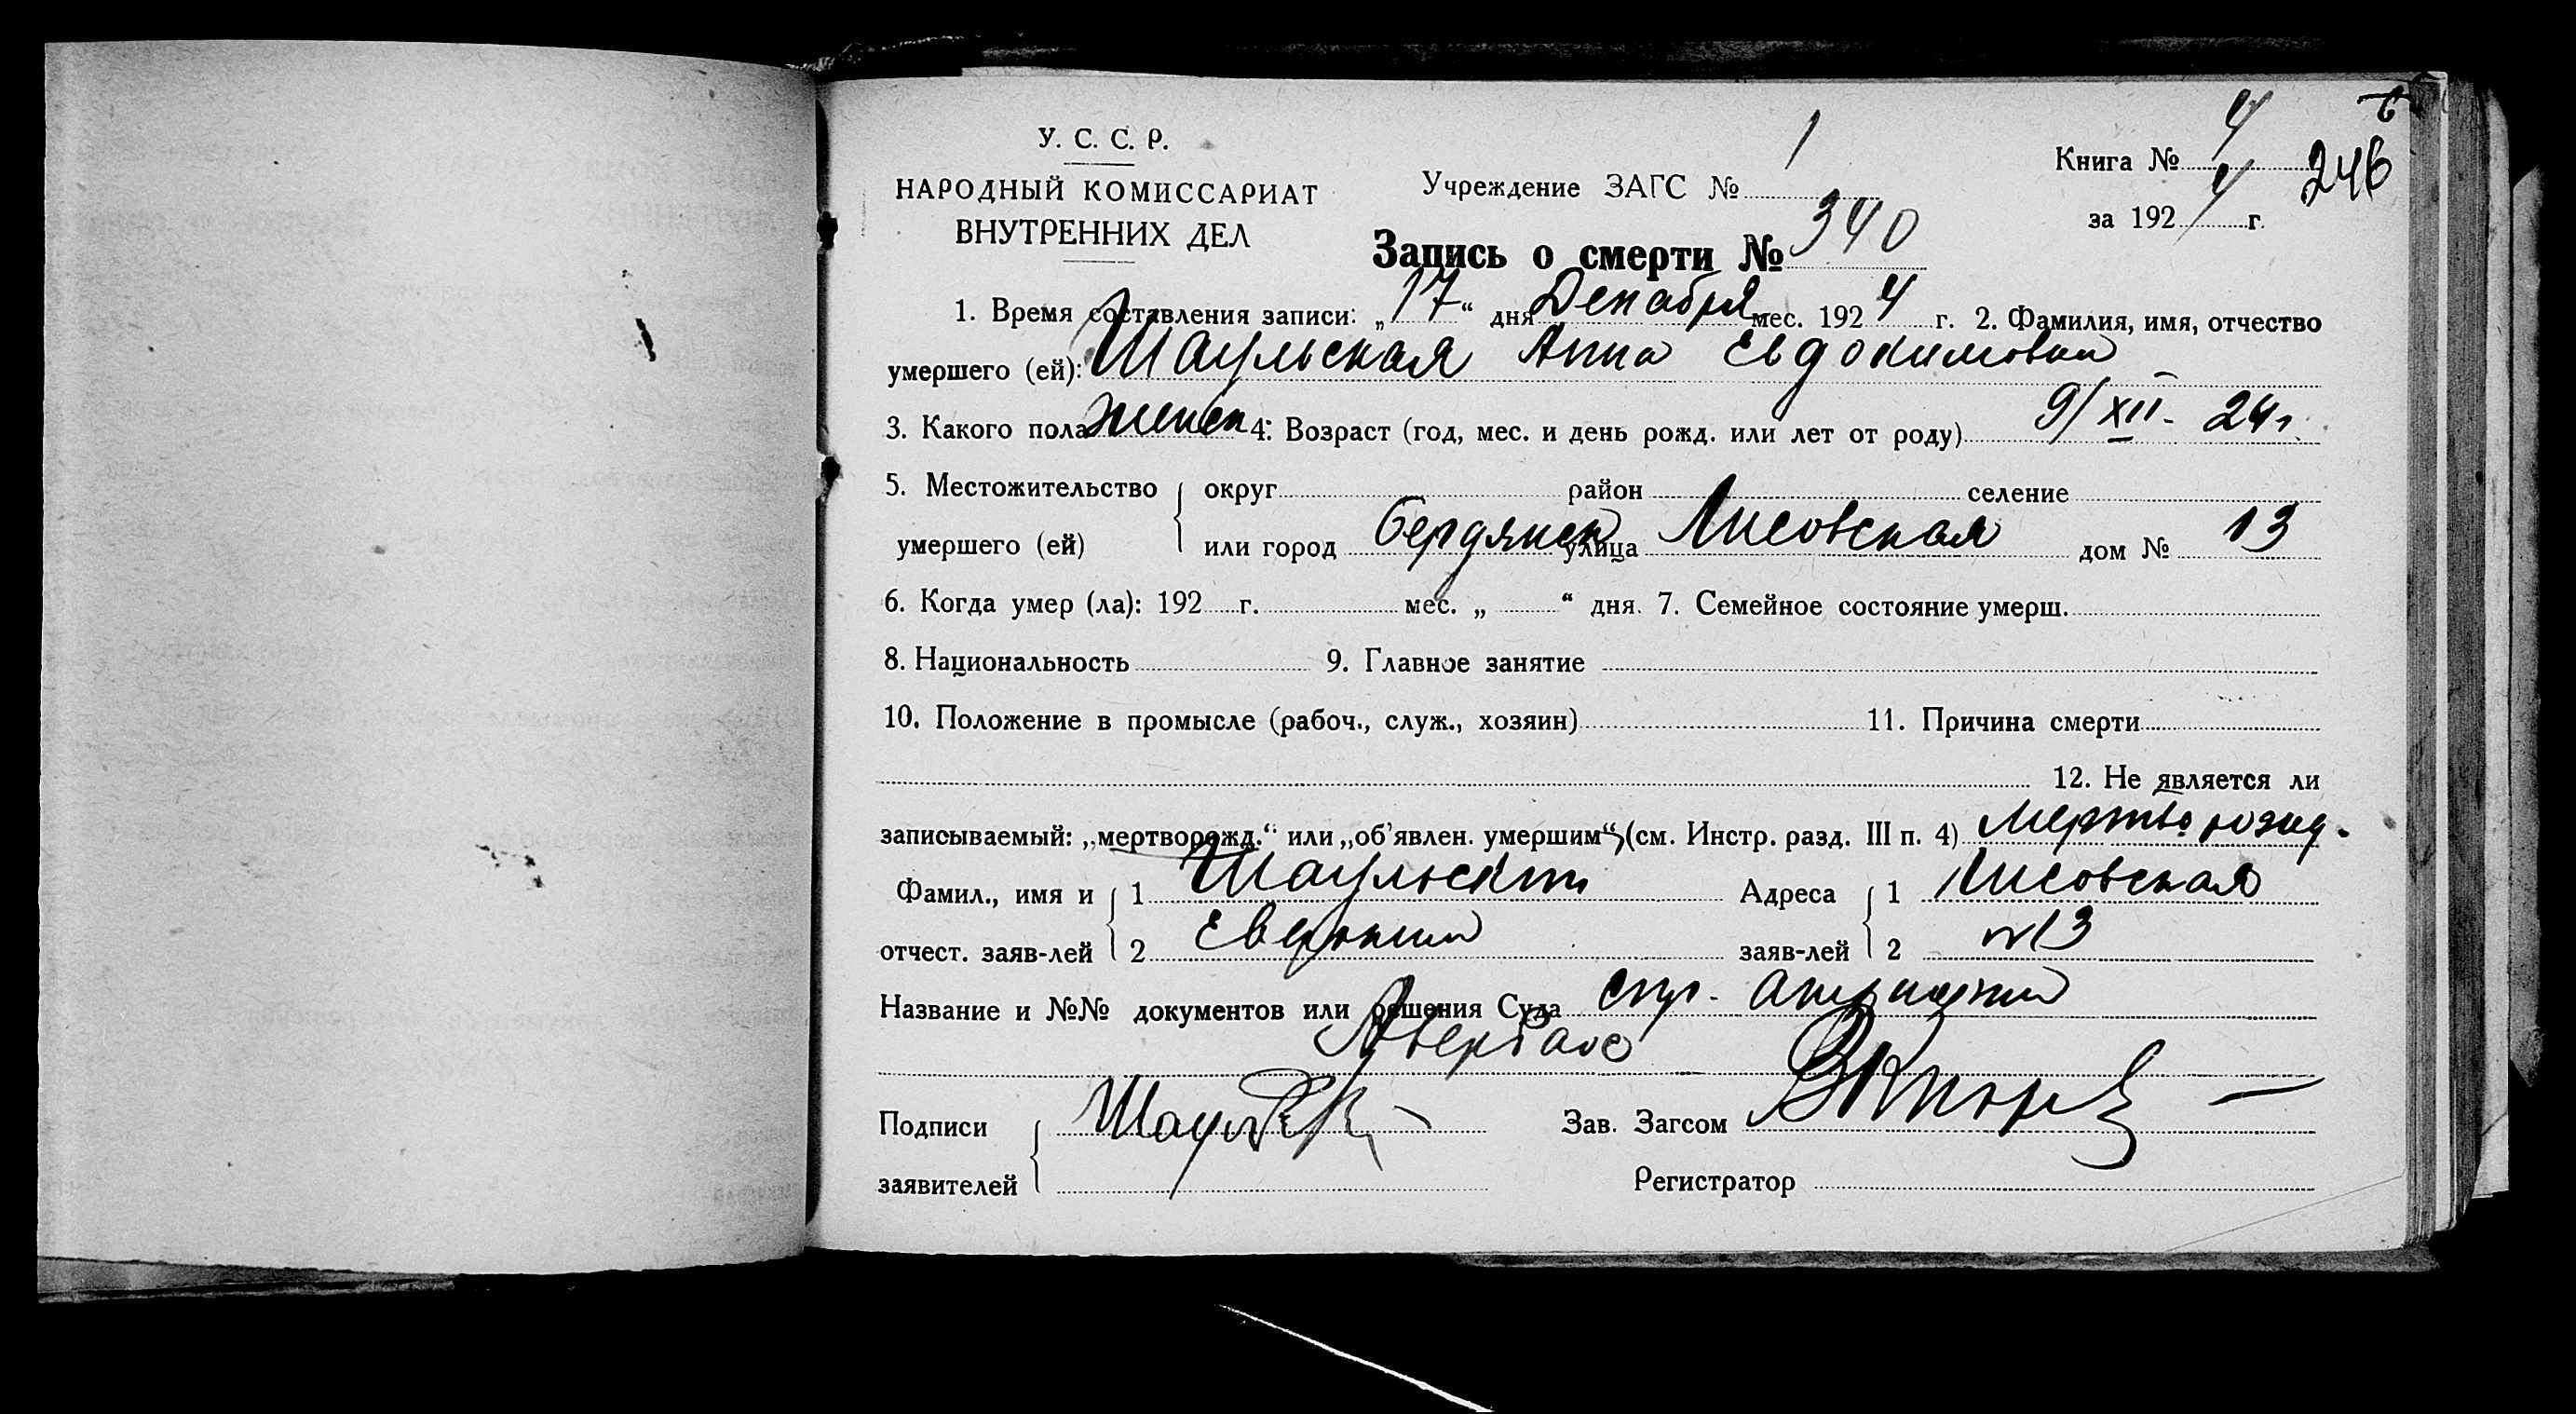 У. С. С. Р.
НАРОДНЫЙ КОМИССАРИАТ
ВНУТРЕННИХ ДЕЛ
Учреждение ЗАГС № 1
Книга № 4
246
за 1924 г.
Запись о смерти № 340
1. Время составления записи: „17“ дня Декабря мес. 1924 г. 2. Фамилия, имя, отчество
умершего (ей): Шаульская Анна Евдокимовна
3. Какого пола женск 4. Возраст (год, мес. и день рожд. или лет от роду) 9/XII - 24 г.
5. Местожительство округ район селение
умершего (ей) или город Бердянск улица Лисовская дом № 13
6. Когда умер (ла): 192 г. мес. „ “ дня. 7. Семейное состояние умерш.
8. Национальность 9. Главное занятие
10. Положение в промысле (рабоч., служ., хозяин) 11. Причина смерти
12. Не является ли
записываемый: „мертворожд.“ или „об'явлен. умершим“ (см. Инстр. разд. III п. 4) Мертворожд.
Фамил., имя и 1 Шаульский Адреса 1 Лисовская
отчест. заяв-лей 2 заяв-лей 2 №13
Название и №№ документов или решения Суда спр. акушерки
Подписи Зав. Загсом
заявителей Регистратор